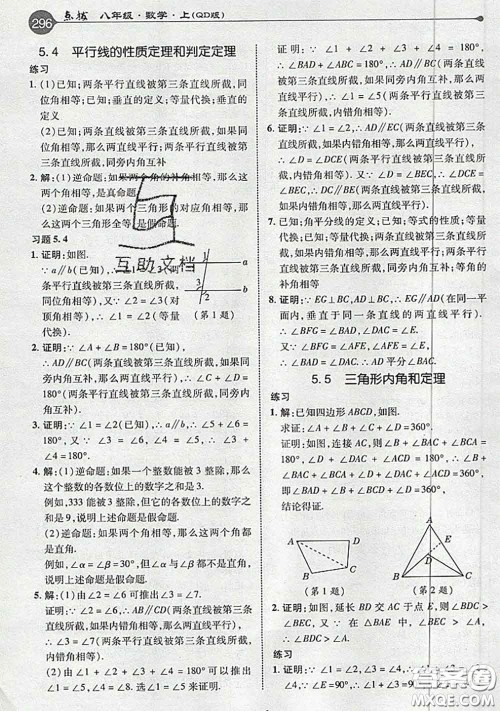 296 点拨 八年级·数学·上(QD版)
5.4 平行线的性质定理和判定定理
练习
1. (1)已知;两条平行直线被第三条直线所截,
同位角相等;已知;垂直的定义;等量代换;垂直的
定义
(2)已知;两条直线被第三条直线所截,如果同
位角相等,那么这两条直线平行;两条平行直线被第
三条直线所截,同旁内角互补
2. 解:(1)逆命题:如果两个角的补角相等,那么这
两个角相等,是真命题.
(2)逆命题:如果两个三角形的对应角相等,那么
这两个三角形全等,是假命题.
习题5.4
1. 证明:
∵a∥b(已知),∴∠1=∠3(两
条平行直线被第三条直线所截,
同位角相等),又∵∠2=∠3
(已知),∴∠1=∠2(等量
代换).
(第1题)
2. 证明:∵∠A+∠B=180°(已知),
∴AD∥BC(两条直线被第三条直线所截,如果
同旁内角互补,那么这两条直线平行),∴∠C+
∠D=180°(两条平行直线被第三条直线所截,同
旁内角互补).
3. 证明:∵∠1=∠2(已知),∴a∥b,∴∠5+∠6=
180°,又∵∠3=∠5,∠4=∠6,∴∠3+∠4
=180°.
4. 解:(1)逆命题:如果一个整数能被3整除,那么
这个整数的各个数位上的数字之和是3.
例如,333能被3整除,但它的各个数位上的数字之
和是9,说明上述命题是假命题.
(2)逆命题:如果两个角的和是180°,那么这两个角
都是直角.
例如,∠α=∠β=30°,但∠α与∠β都不是直角,
说明上述命题是假命题.
5. 解:(1)由∠2=∠6可以推出∠3=∠7.
证明:∵∠2=∠6,∴AB∥CD(两条直线被第三条
直线所截,如果内错角相等,那么这两条直线平行),
∴∠3=∠7(两条平行直线被第三条直线所截,内
错角相等).
(2)由∠1+∠2+∠3+∠4=180°可以推出
∠5=∠1.选∠5=∠1来证明.
证明:∵∠1+∠2+∠3+∠4=180°(已知),
∴∠BAD+∠B=180°,∴AD∥BC(两条直线被
第三条直线所截,如果同旁内角互补,那么这两条直
线平行),∴∠1=∠5(两条平行直线被第三条直线
所截,内错角相等).
6. 证明:∵∠1=∠2,∴AD∥EC(两条直线被第三条
直线所截,如果内错角相等,那么这两条直线平行),
∴∠D=∠DCE(两条平行直线被第三条直线所截,
内错角相等),又∵∠D=∠BEC(已知),∴∠BEC=
∠DCE,∴DC∥BE(两条直线被第三条直线所截,
如果内错角相等,那么这两条直线平行).
7. 已知;角平分线的定义;已知;等式的性质;等量代
换;已知;等量代换;两条直线被第三条直线所截,
如果内错角相等,那么这两条直线平行;两条平行
直线被第三条直线所截,内错角相等;等腰三角形
的两底角相等
8. 证明:∵EG⊥BC,AD⊥BC,∴EG∥AD(在同一平
面内,垂直于同一条直线的两直线平行),
∴∠BFG=∠BAD,∠AEG=∠DAC.又∵∠BFG
=∠AEG,∴∠BAD=∠DAC.∴AD平分∠BAC.
5.5 三角形内角和定理
练习
1. 解:已知四边形ABCD,如图.
求证:∠A+∠B+∠C+∠D=360°.
证明:如图,连接AC,则∠BAC+∠B+∠BCA=
180°,∠DAC+∠D+∠DCA=180°,∴∠BAC+
∠B+∠BCA+∠DAC+∠D+∠DCA=360°,
即∠BAD+∠B+∠BCD+∠D=360°,
结论得证.
A D B C
(第1题)
A E D B C
(第2题)
2. 证明:如图,延长BD交AC于点E,则∠BDC>
∠BEC.又∵∠BEC>∠BAC,
∴∠BDC>∠BAC.
练习
1. 证明:如图.∵∠AFE=90°,∴∠1+∠A=90°.
又∵∠E=90°,∴∠2+
互助文档